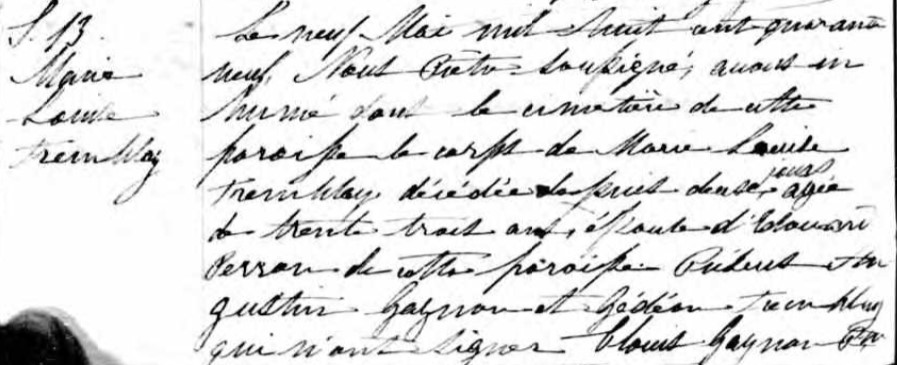 S. 13.
Marie
Louise
Tremblay
Le neuf Mai mil huit cent quarante
neuf, Nous Prêtre soussigné, avons in
humé dans le cimetière de cette
paroisse le corps de Marie Louise
Tremblay décédée depuis deux jours agée
de trente trois ans, épouse d'Edouard
Perron de cette paroisse. Présents Au
gustin Gagnon et Gédéon Tremblay
qui n'ont signer Clouis Gagnon Ptr